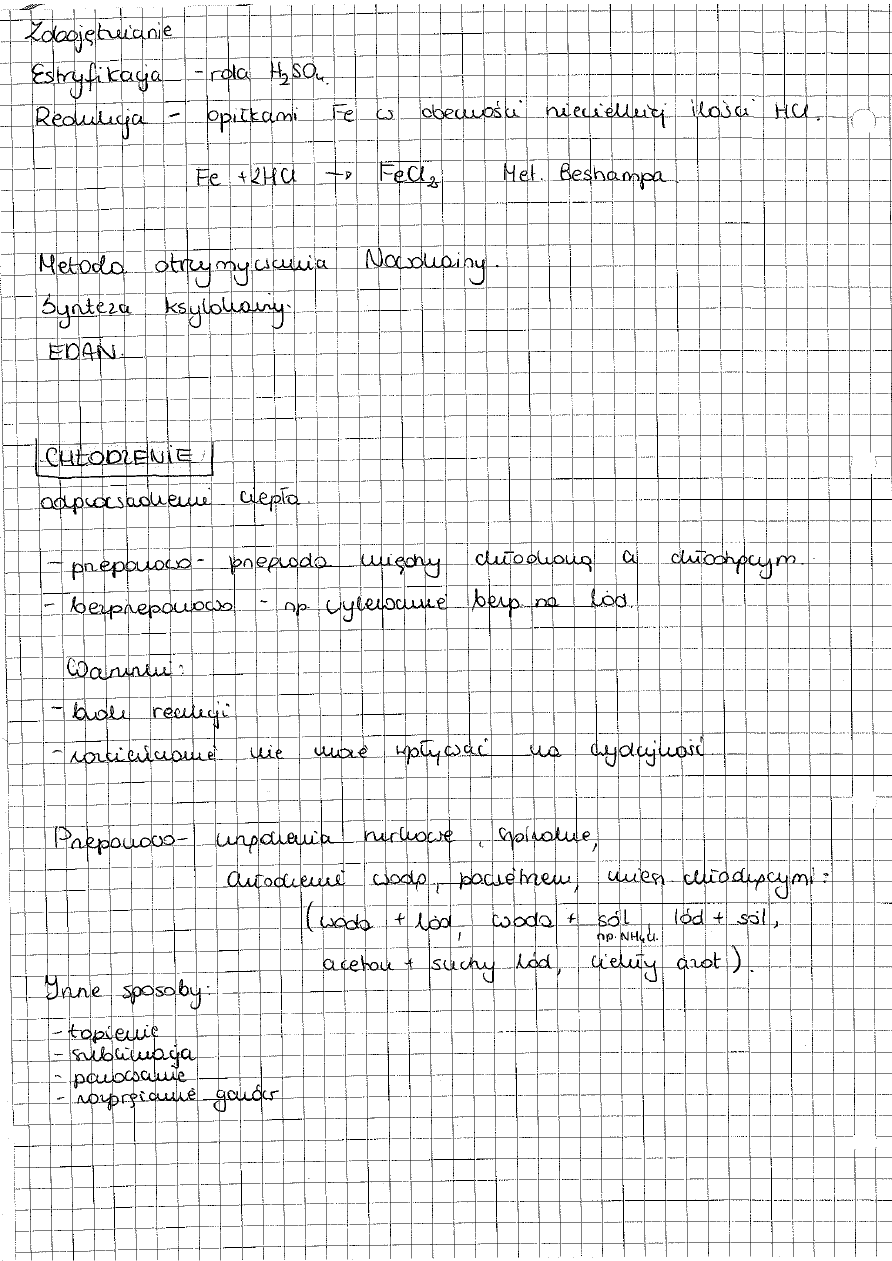 Zobojętnianie
Estryfikacja - rola H₂SO₄.
Redukcja - opiłkami Fe w obecności niewielkiej ilości HCl.
Fe + 2HCl → FeCl₂ Met. Beshampa
Metoda otrzymywania Nowokainy.
Synteza ksylokainy.
EDAN.
CHŁODZENIE
odprowadzenie ciepła.
- przeponowo - przegroda między chłodzoną a chłodzącym.
- bezprzeponowo - np wylewanie bezp. na lód.
Warunki:
- brak reakcji
- rozcieńczanie nie może wpływać na wydajność
Przeponowo - urządzenia rurkowe, spiralne,
chłodzenie wodą, powietrzem, miesz. chłodzącymi:
(woda + lód, woda + sól, lód + sól,
np. NH₄Cl.
aceton + suchy lód, ciekły azot).
Inne sposoby:
- topienie
- sublimacja
- parowanie
- rozprężanie gazów